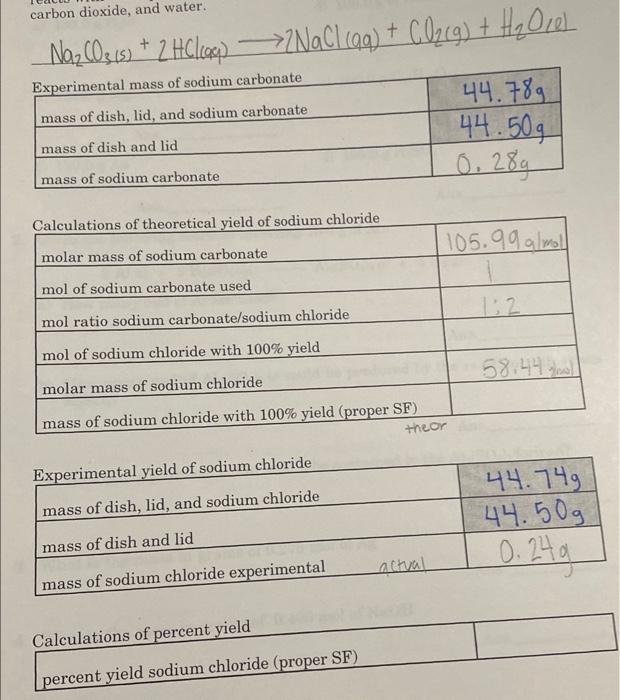 carbon dioxide, and water.
Na₂CO₃(s) + 2HCl(aq) → 2NaCl(aq) + CO₂(g) + H₂O(l)
Experimental mass of sodium carbonate
mass of dish, lid, and sodium carbonate 44.78g
mass of dish and lid 44.50g
mass of sodium carbonate 0.28g
Calculations of theoretical yield of sodium chloride
molar mass of sodium carbonate 105.99 g/mol
mol of sodium carbonate used 1
mol ratio sodium carbonate/sodium chloride 1:2
mol of sodium chloride with 100% yield
molar mass of sodium chloride 58.44 g/mol
mass of sodium chloride with 100% yield (proper SF)
theor
Experimental yield of sodium chloride
mass of dish, lid, and sodium chloride 44.74g
mass of dish and lid 44.50g
mass of sodium chloride experimental actual 0.24g
Calculations of percent yield
percent yield sodium chloride (proper SF)